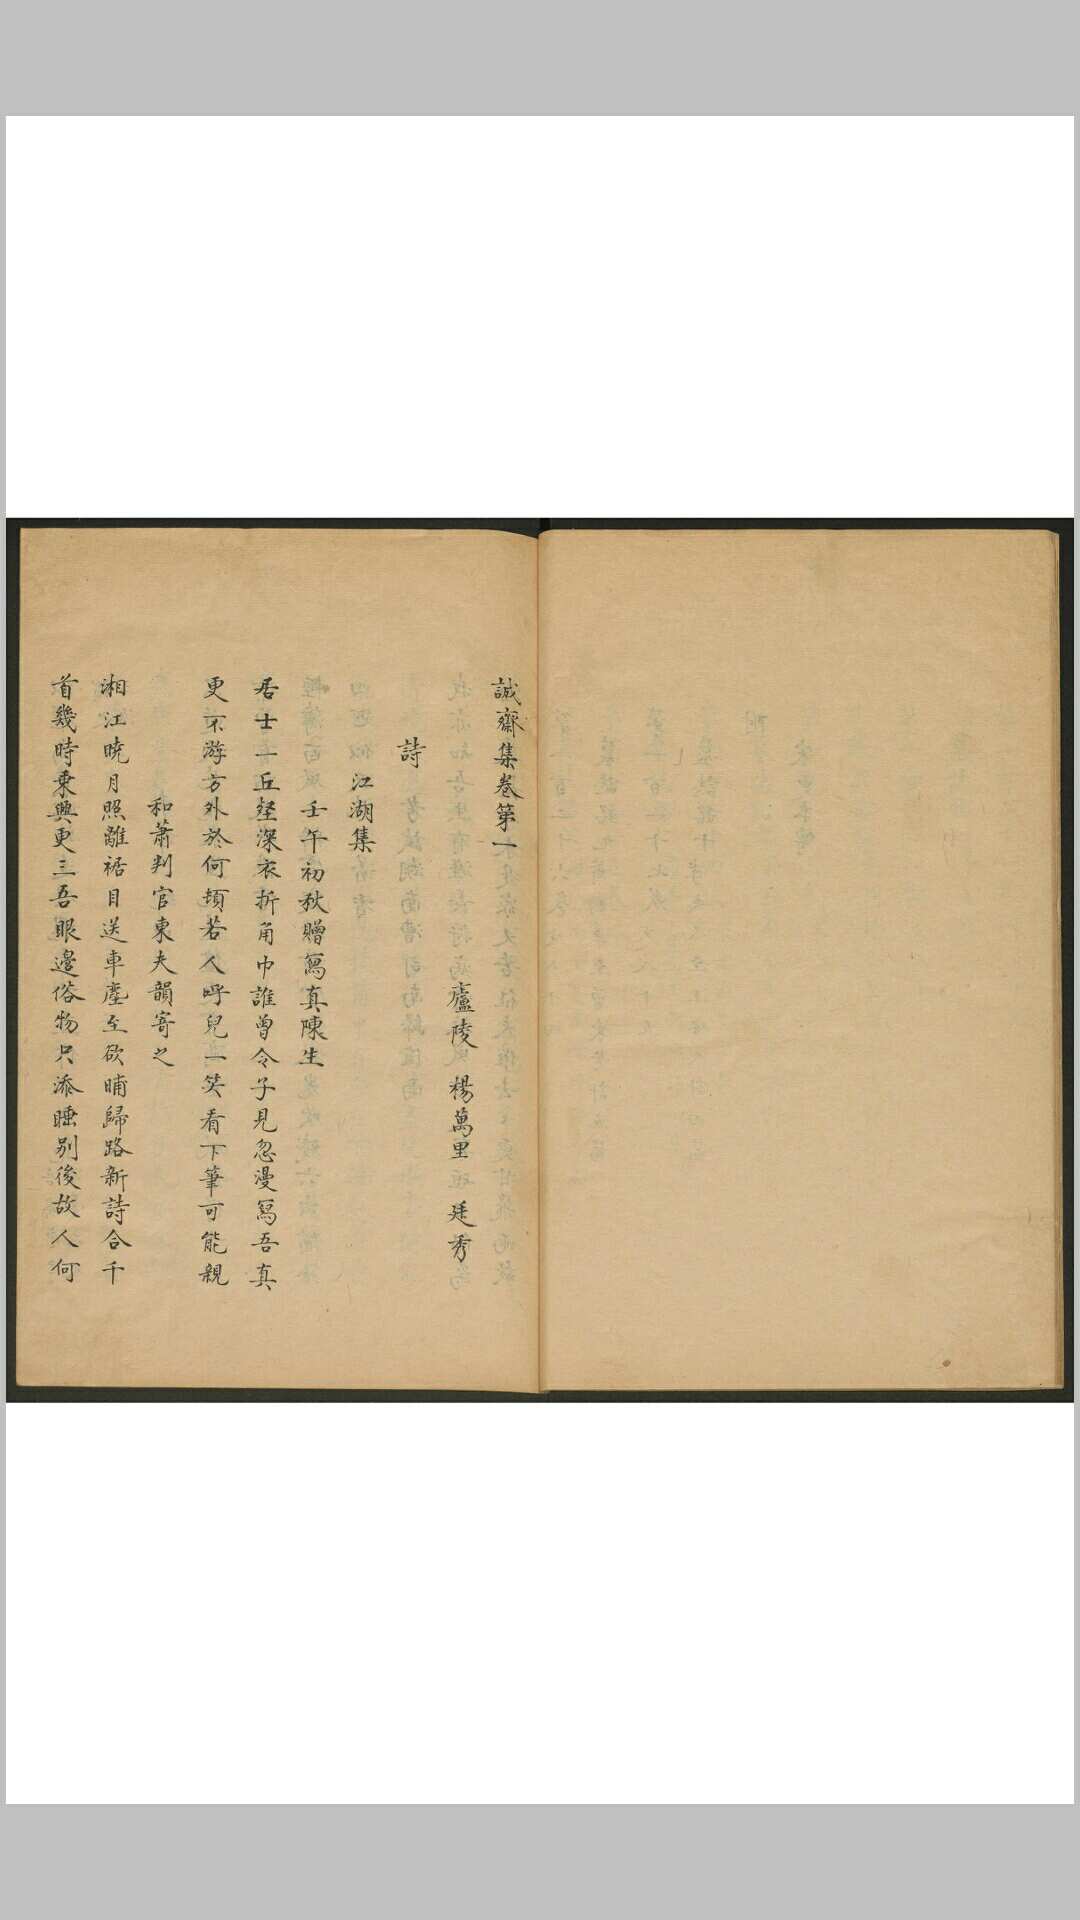 誠齋集卷第一
廬陵 楊萬里 廷秀
詩
江湖集
壬午初秋贈寫真陳生
居士一丘壑深衣折角巾誰曾令子見忽漫寫吾真
更不游方外於何頓若人呼兒一笑看下筆可能親
和蕭判官東夫韻寄之
湘江曉月照離裾目送車塵至欲晡歸路新詩合千
首幾時乘興更三吾眼邊俗物只添睡別後故人何